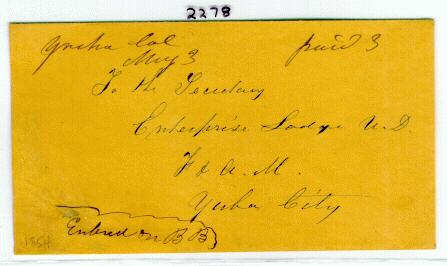 2278
Yuba Cal
May 3
paid 3
To the Secretary
Enterprise Lodge U.D.
F & A. M.
Yuba City
Entered on B B
1854